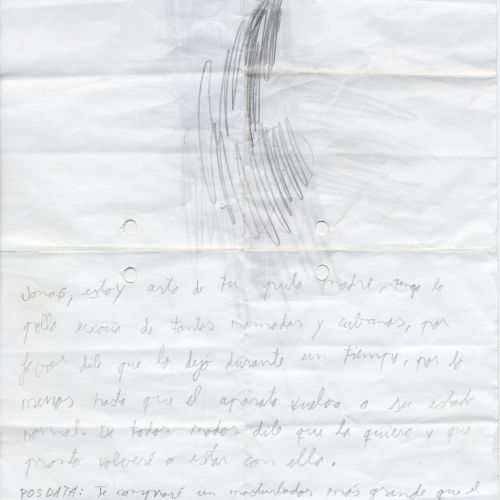 Jonas, estoy arto de tu puta madre, tengo la
polla escocía de tantas mamadas y cubanas, por
favor dile que lo dejo durante un tiempo, por lo
menos hasta que el aparato vuelva a su estado
normal. De todos modos dile que la quiero y que
pronto volveré a estar con ella.
POSDATA: Te compraré un masturbador más grande que el